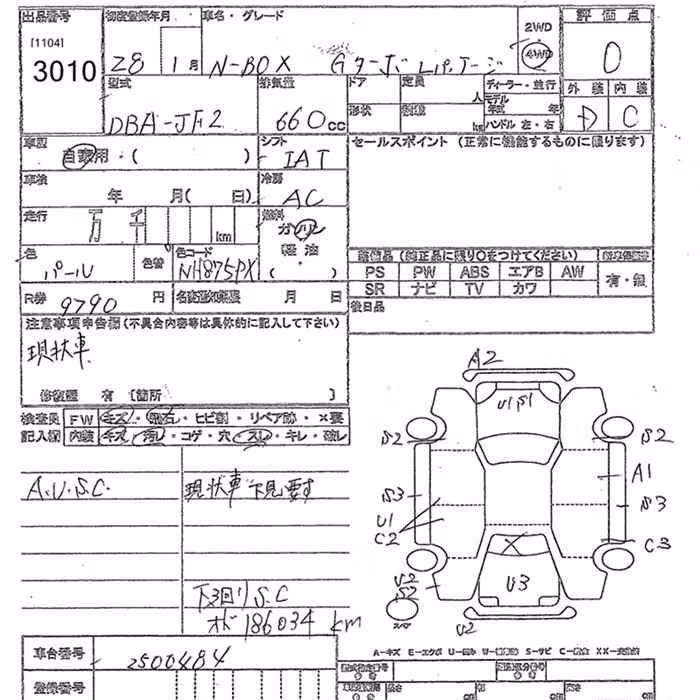 出品番号 初度登録年月 車名・グレード 2WD 評価点
[1104] 28 1月 N-BOX Gターボ Lパッケージ 4WD 0
3010
型式 排気量 ドア 定員 人 ディーラー・並行 外装 内装
DBA-JF2 660cc 形状 kg モデル年式 年 D C
ハンドル 左・右
車歴 シフト セールスポイント (正常に機能するものに限ります)
自家用・( ) IAT
車検 冷房
年 月( 日) AC
走行 万千 km 燃料
ガソリン
色 色替 色コード 軽油
パール NH875PX ( ・ )
装備品 (純正品に限り○をつけてください)
PS PW ABS エアB AW 有・無
SR ナビ TV カワ
R券 9790円 名義変更期限 月 日 後日品
注意事項申告欄 (不具合内容等は具体的に記入して下さい)
現状車
修復歴 有 [箇所 ]
検査員 FW キズ・飛石・ヒビ割・リペア跡・×要
記入欄 内装 キズ・汚レ・コゲ・穴・スレ・キレ・破レ
A2
U1 S1
S2 S2
A1
S3 S3
U1
C2 C3
U2
S2 U3
U2
A.U.S.C. 現状車 下見要す
下3回りS.C
オド186034km
A-キズ E-エクボ U-凹み S-サビ
車台番号 2500484
登録番号